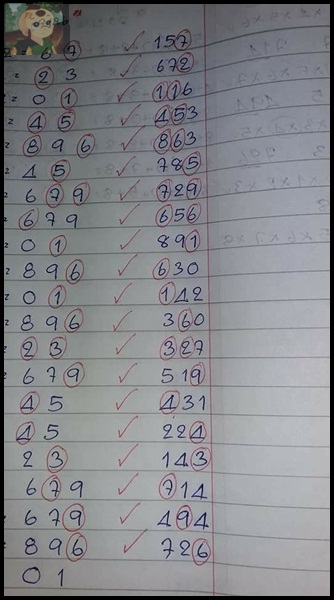 = 6 7 ✓ 157
= 2 3 ✓ 672
= 0 1 ✓ 116
= 4 5 ✓ 453
= 8 9 6 ✓ 863
= 4 5 ✓ 785
= 6 7 9 ✓ 729
= 6 7 9 ✓ 656
= 0 1 ✓ 891
= 8 9 6 ✓ 630
= 0 1 ✓ 142
= 8 9 6 ✓ 360
= 2 3 ✓ 327
= 6 7 9 ✓ 519
4 5 ✓ 431
4 5 ✓ 224
2 3 ✓ 143
6 7 9 ✓ 714
6 7 9 ✓ 494
8 9 6 ✓ 726
0 1